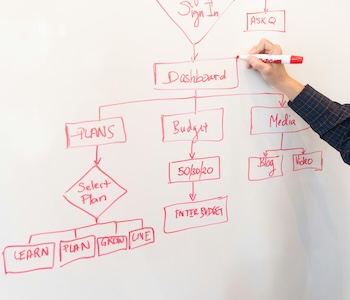 Sign In
ASK Q
Dashboard
PLANS
Budget
Media
Select
Plan
50/30/20
Blog
Video
ENTER BUDGET
LEARN
PLAN
GROW
LIVE